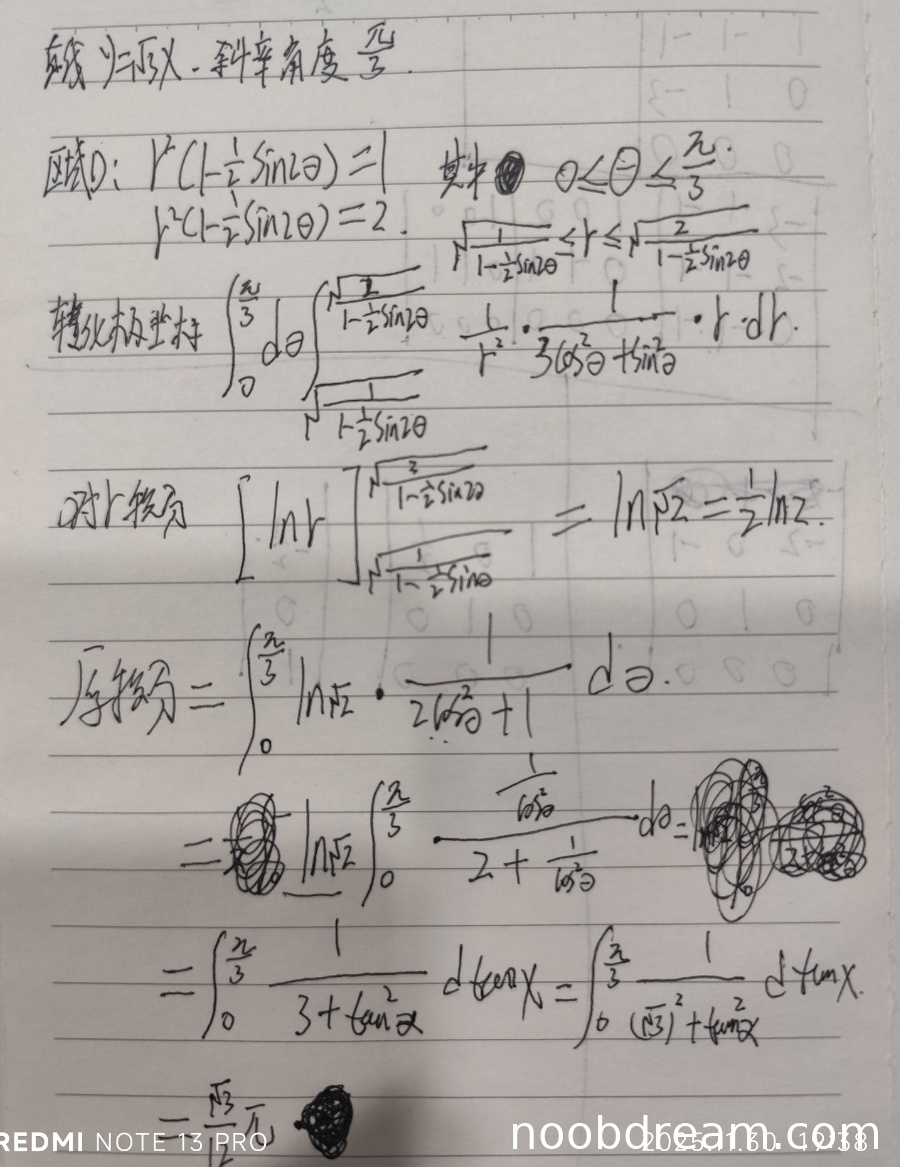 直线 y=√3x. 斜率角度 π/3.
区域D: r²(1-½sin2θ)=1 其中 0≤θ≤π/3.
r²(1-½sin2θ)=2. √(1/(1-½sin2θ)) ≤ r ≤ √(2/(1-½sin2θ))
转化极坐标 ∫₀^(π/3) dθ ∫_(√(1/(1-½sin2θ)))^(√(2/(1-½sin2θ))) 1/r² · 1/(3cos²θ+sin²θ) · r·dr.
对r积分 [ln r]_(√(1/(1-½sinθ)))^(√(2/(1-½sin2θ))) = ln√2 = ½ln2.
原积分 = ∫₀^(π/3) ln√2 · 1/(2cos²θ+1) dθ.
= ln√2 ∫₀^(π/3) (1/cos²θ)/(2+1/cos²θ) dθ =
= ∫₀^(π/3) 1/(3+tan²x) dtanx = ∫₀^(π/3) 1/((√3)²+tan²x) dtanx.
= √3/12 π
REDMI NOTE 13 PRO
2025.11.30 19:38
noobdream.com